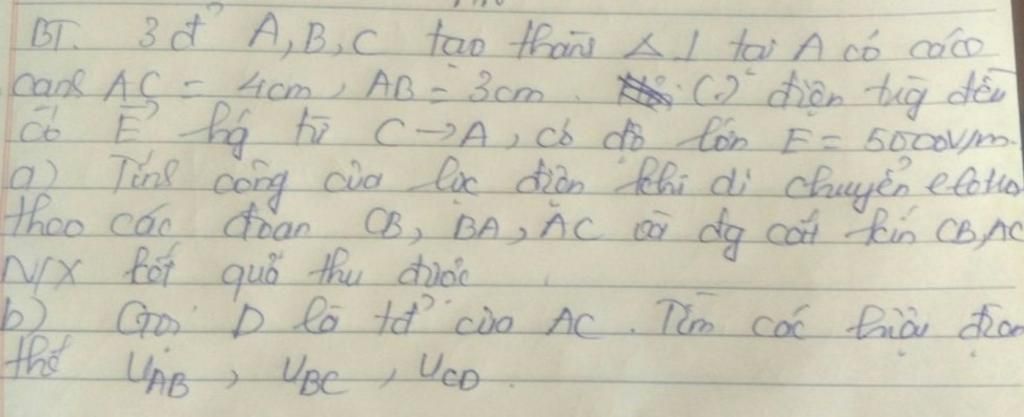 BT. 3 đ² A, B, C tạo thành Δ ⊥ tại A có các
cạnh AC = 4cm, AB = 3cm. (.) điện trg đều
có E hg từ C → A, có độ lớn E = 5000V/m.
a) Tính công của lực điện khi di chuyển e
theo các đoạn CB, BA, AC và đg kín CB, AC
N/X kết quả thu được
b) Gọi D là tđ² của AC. Tìm các hiệu điện
thế U_AB, U_BC, U_CD.